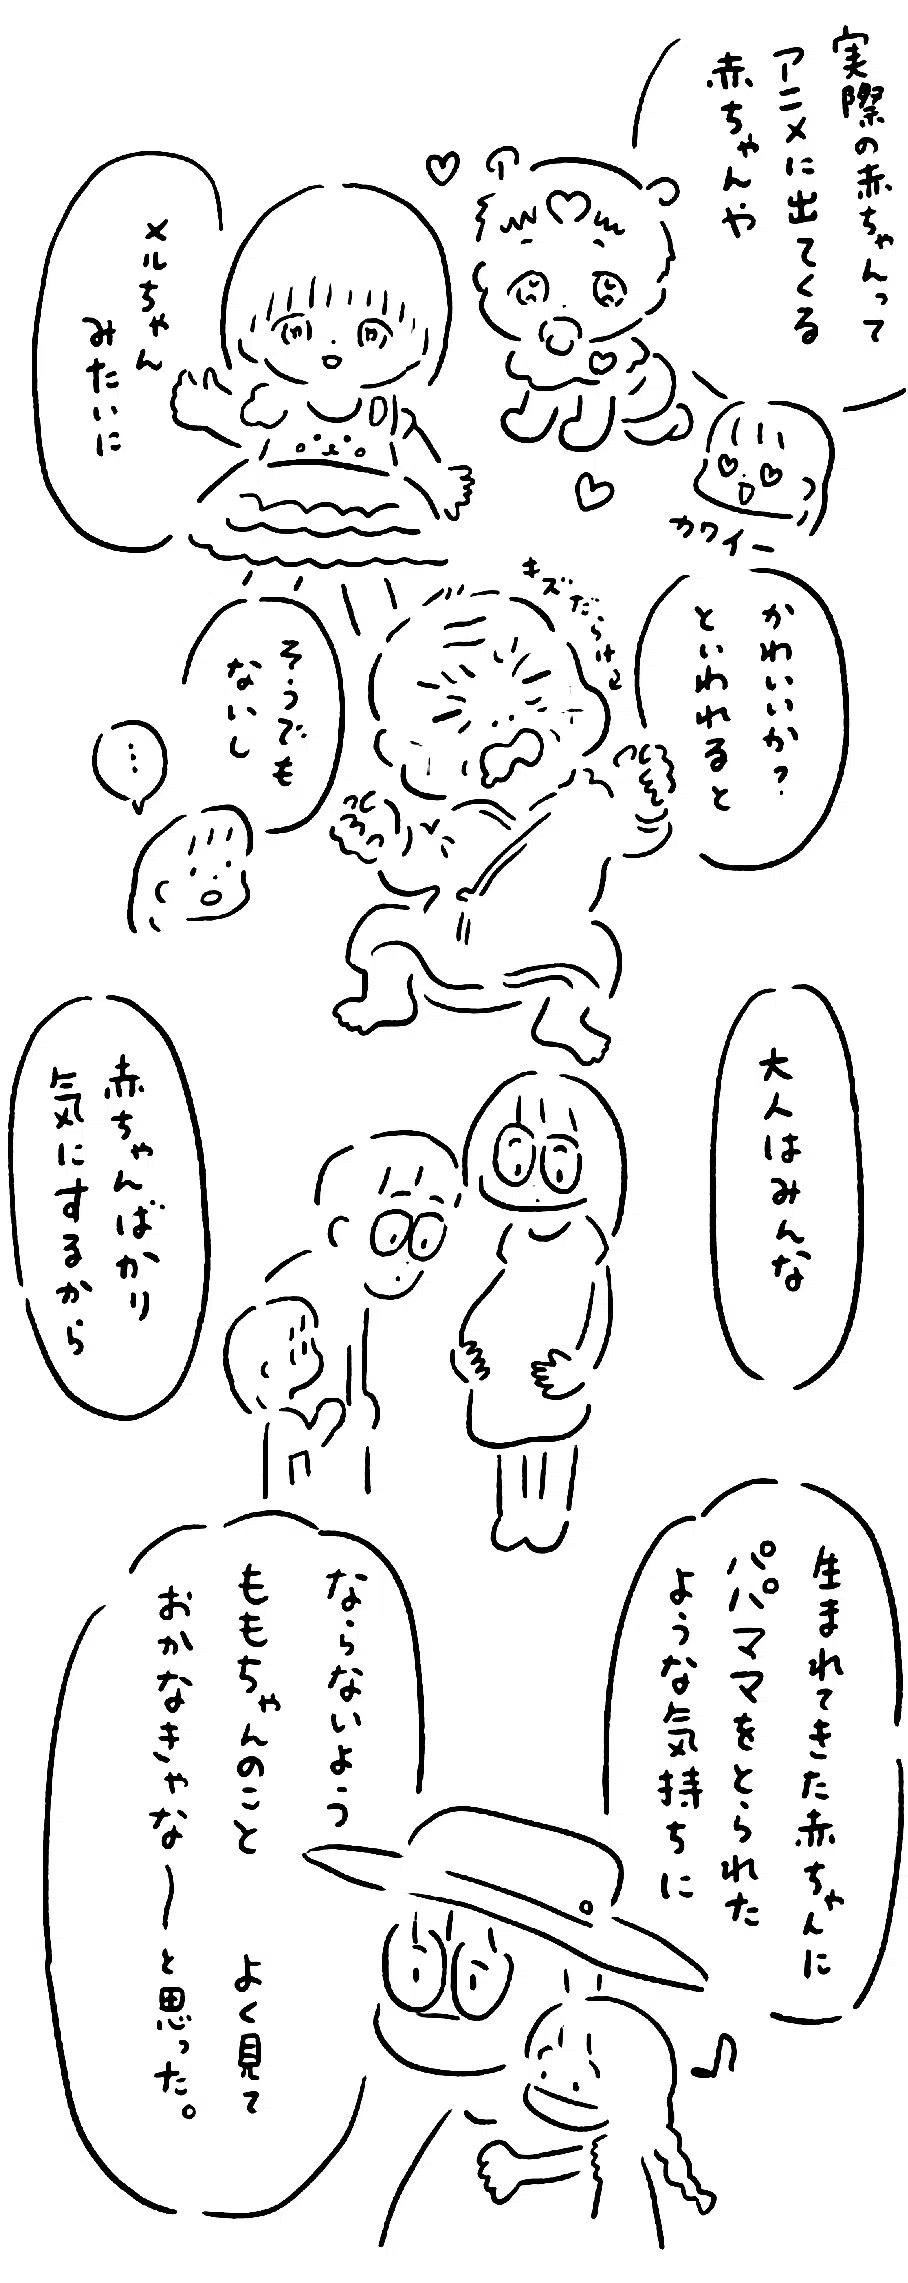 実際の赤ちゃんって
アニメに出てくる
赤ちゃんや
カワイー
メルちゃん
みたいに
かわいいか?
といわれると
キズだらけ
そうでも
ないし
…
大人はみんな
赤ちゃんばかり
気にするから
生まれてきた赤ちゃんに
パパママをとられた
ような気持ちに
ならないよう
ももちゃんのこと よく見て
おかなきゃな〜と思った。